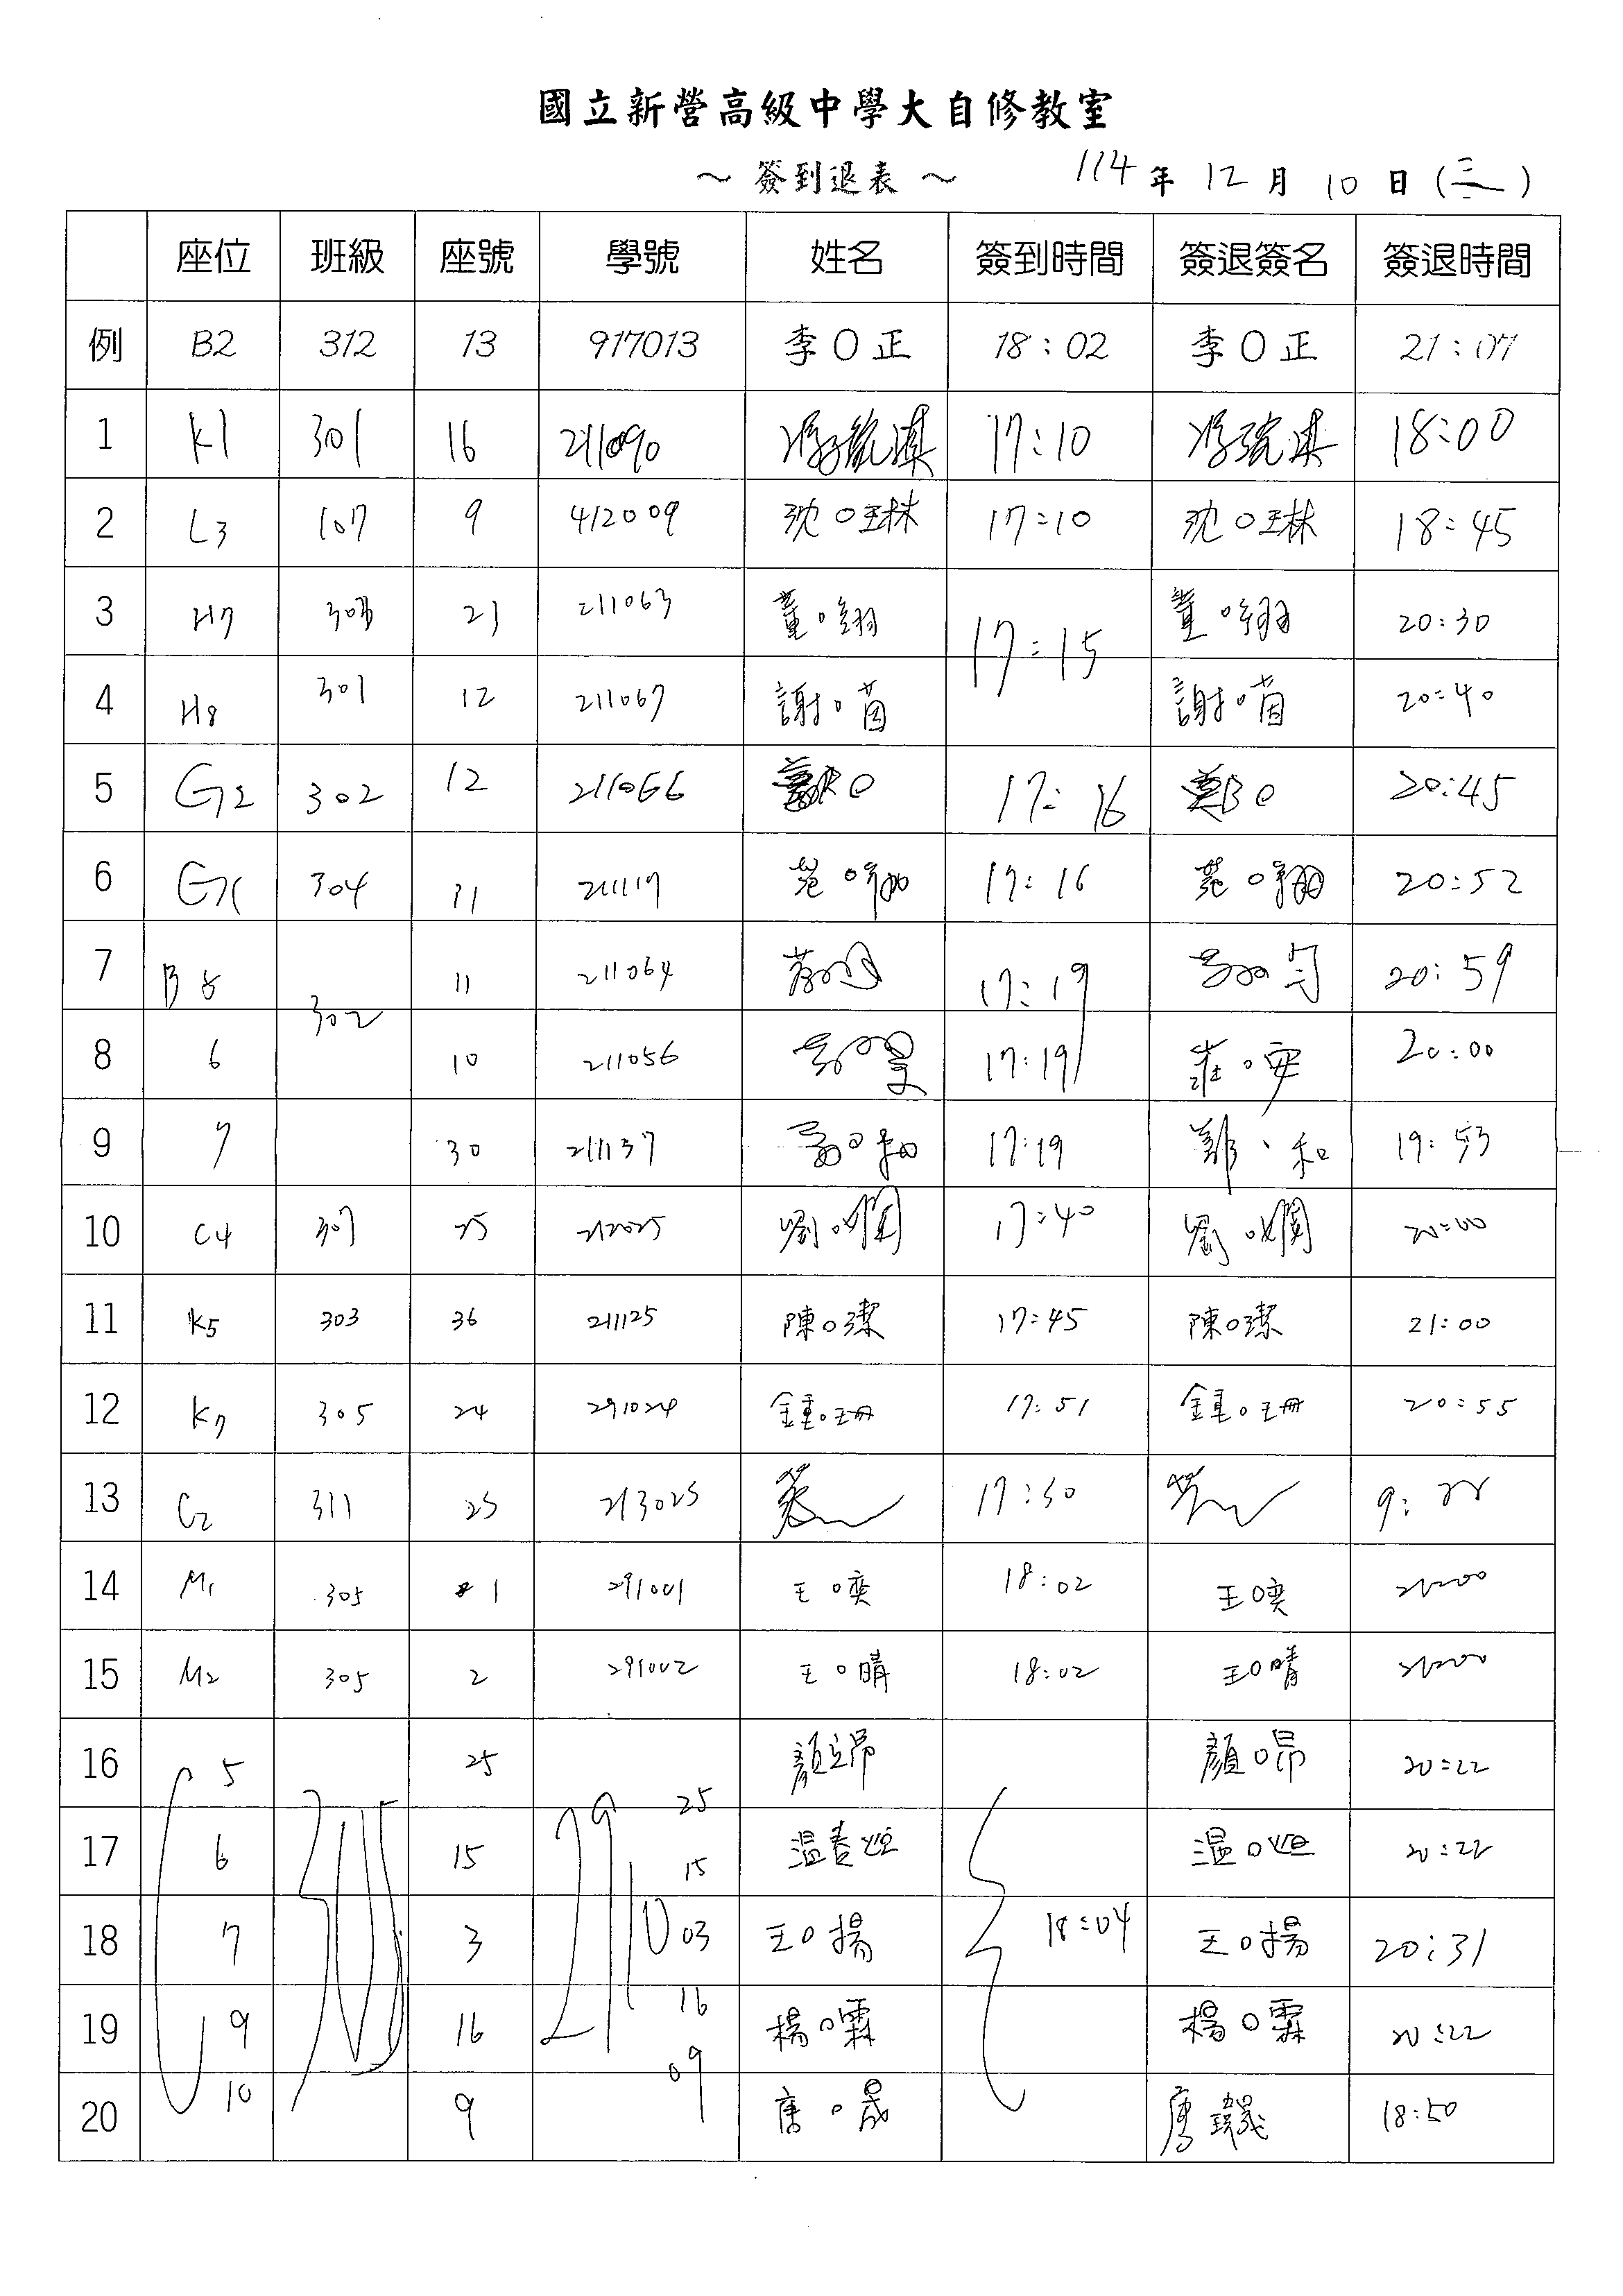 國立新營高級中學大自修教室
～ 簽到退表 ～ 114 年 12 月 10 日 (三)
座位 班級 座號 學號 姓名 簽到時間 簽退簽名 簽退時間
例 B2 312 13 917013 李O正 18:02 李O正 21:07
1 K1 301 16 211090 17:10 18:00
2 L3 107 9 412009 沈O琳 17:10 沈O琳 18:45
3 H7 21 211063 董O翊 17:15 董O翊 20:30
4 H8 301 12 211067 謝O茵 謝O茵 20:40
5 G2 302 12 211066 17:16 鄭O 20:45
6 G1 304 11 211117 17:16 20:52
7 B8 302 11 211064 17:19 20:59
8 6 10 211056 17:19 莊O安 20:00
9 7 30 211137 17:19 鄭、和 19:53
10 C4 307 25 212025 劉O嫻 17:40 劉O嫻 20:00
11 K5 303 36 211125 陳O潔 17:45 陳O潔 21:00
12 K7 305 24 291024 鍾O珊 17:51 鍾O珊 20:55
13 C2 311 25 213025 17:50 9:22
14 M1 305 1 291001 王O奕 18:02 王O奕 21:00
15 M2 305 2 291002 王O晴 18:02 王O晴 21:00
16 5 25 25 顏O昂 20:22
17 6 305 15 2910 15 溫O烜 20:22
18 7 3 03 王O揚 18:04 王O揚 20:31
19 9 16 16 楊O霖 楊O霖 20:22
20 10 9 09 唐O晟 18:50